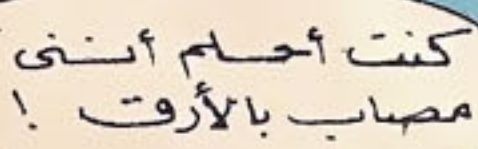 كنت أحلم أننى
مصاب بالأرق !